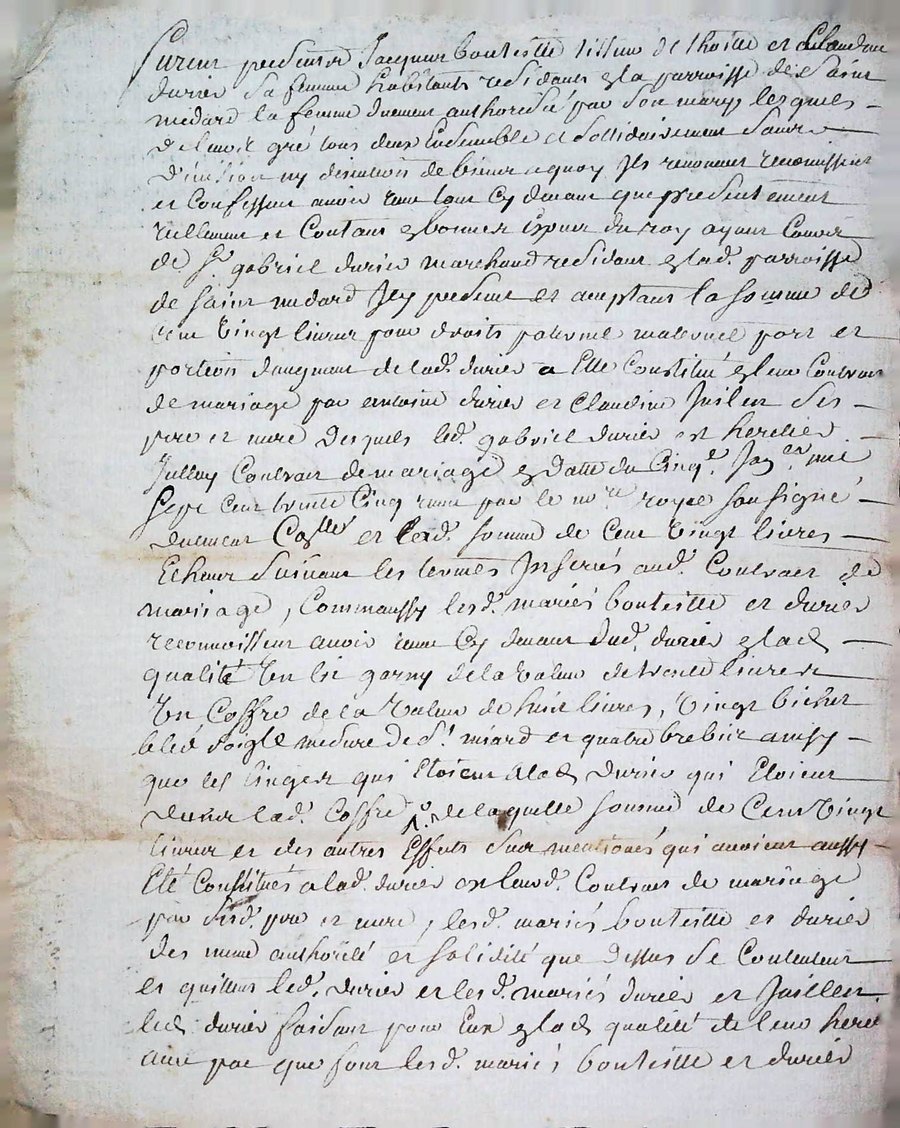 furent presents Jacques bouteille tisseur de thoille et Claudine
durier sa femme habitants residants en la parroisse de Saint
medard la femme duement authorisée par son mary lesquels
de leur gré tous deux Ensemble et sollidairement sans
division ny discution de biens a quoy Ils renoncent reconnoissent
et Confessent avoir reçu tout Cy devant que presentement
reellement et Contant en bonnes Especes du roy ayant Cours
de Sr. gabriel durier marchand residant en lad. parroisse
de saint medard Icy present et acceptant la somme de
Cent Vingt livres pour droits paternel maternel part et
portion daugment de lad. durier a Elle Constitué en leur Contract
de mariage par antoine durier et Claudine Juillen ses
pere et mere desquels led. gabriel durier est heretier
Julluy Contract de mariage en datte du Cinqe. mil
sept cent trente Cinq reçu par le nore royal soussigné
duement Collé et lad. somme de Cent Vingt livres
Echeue suivant les termes Inserés aud. Contract de
mariage, Comm aussy lesd. mariés bouteille et durier
reconnoissent avoir reçu Cy devant dud. durier en lad.
qualité Un lit garny de la valeur de trente livres
Un Coffre de la Valeur de huit livres, Vingt bichet
bled soigle mesure de St. miard et quatre brebis aussy
que les linges qui Etoient a lad. durier qui Etoient
dans lad. Coffre, de laquelle somme de Cent Vingt
livres et des autres Effets sus mentionés qui avoient aussy
Eté Constitués a lad. durier en leurd. Contract de mariage
par sesd. pere et mere, lesd. mariés bouteille et durier
des meme authorité et solidité que dessus se Contentent
et quittent led. durier et lesd. mariés durier et Juillen
led. durier faisant pour Eux en lad. qualité de leur here
avec pac que font lesd. mariés bouteille et durier